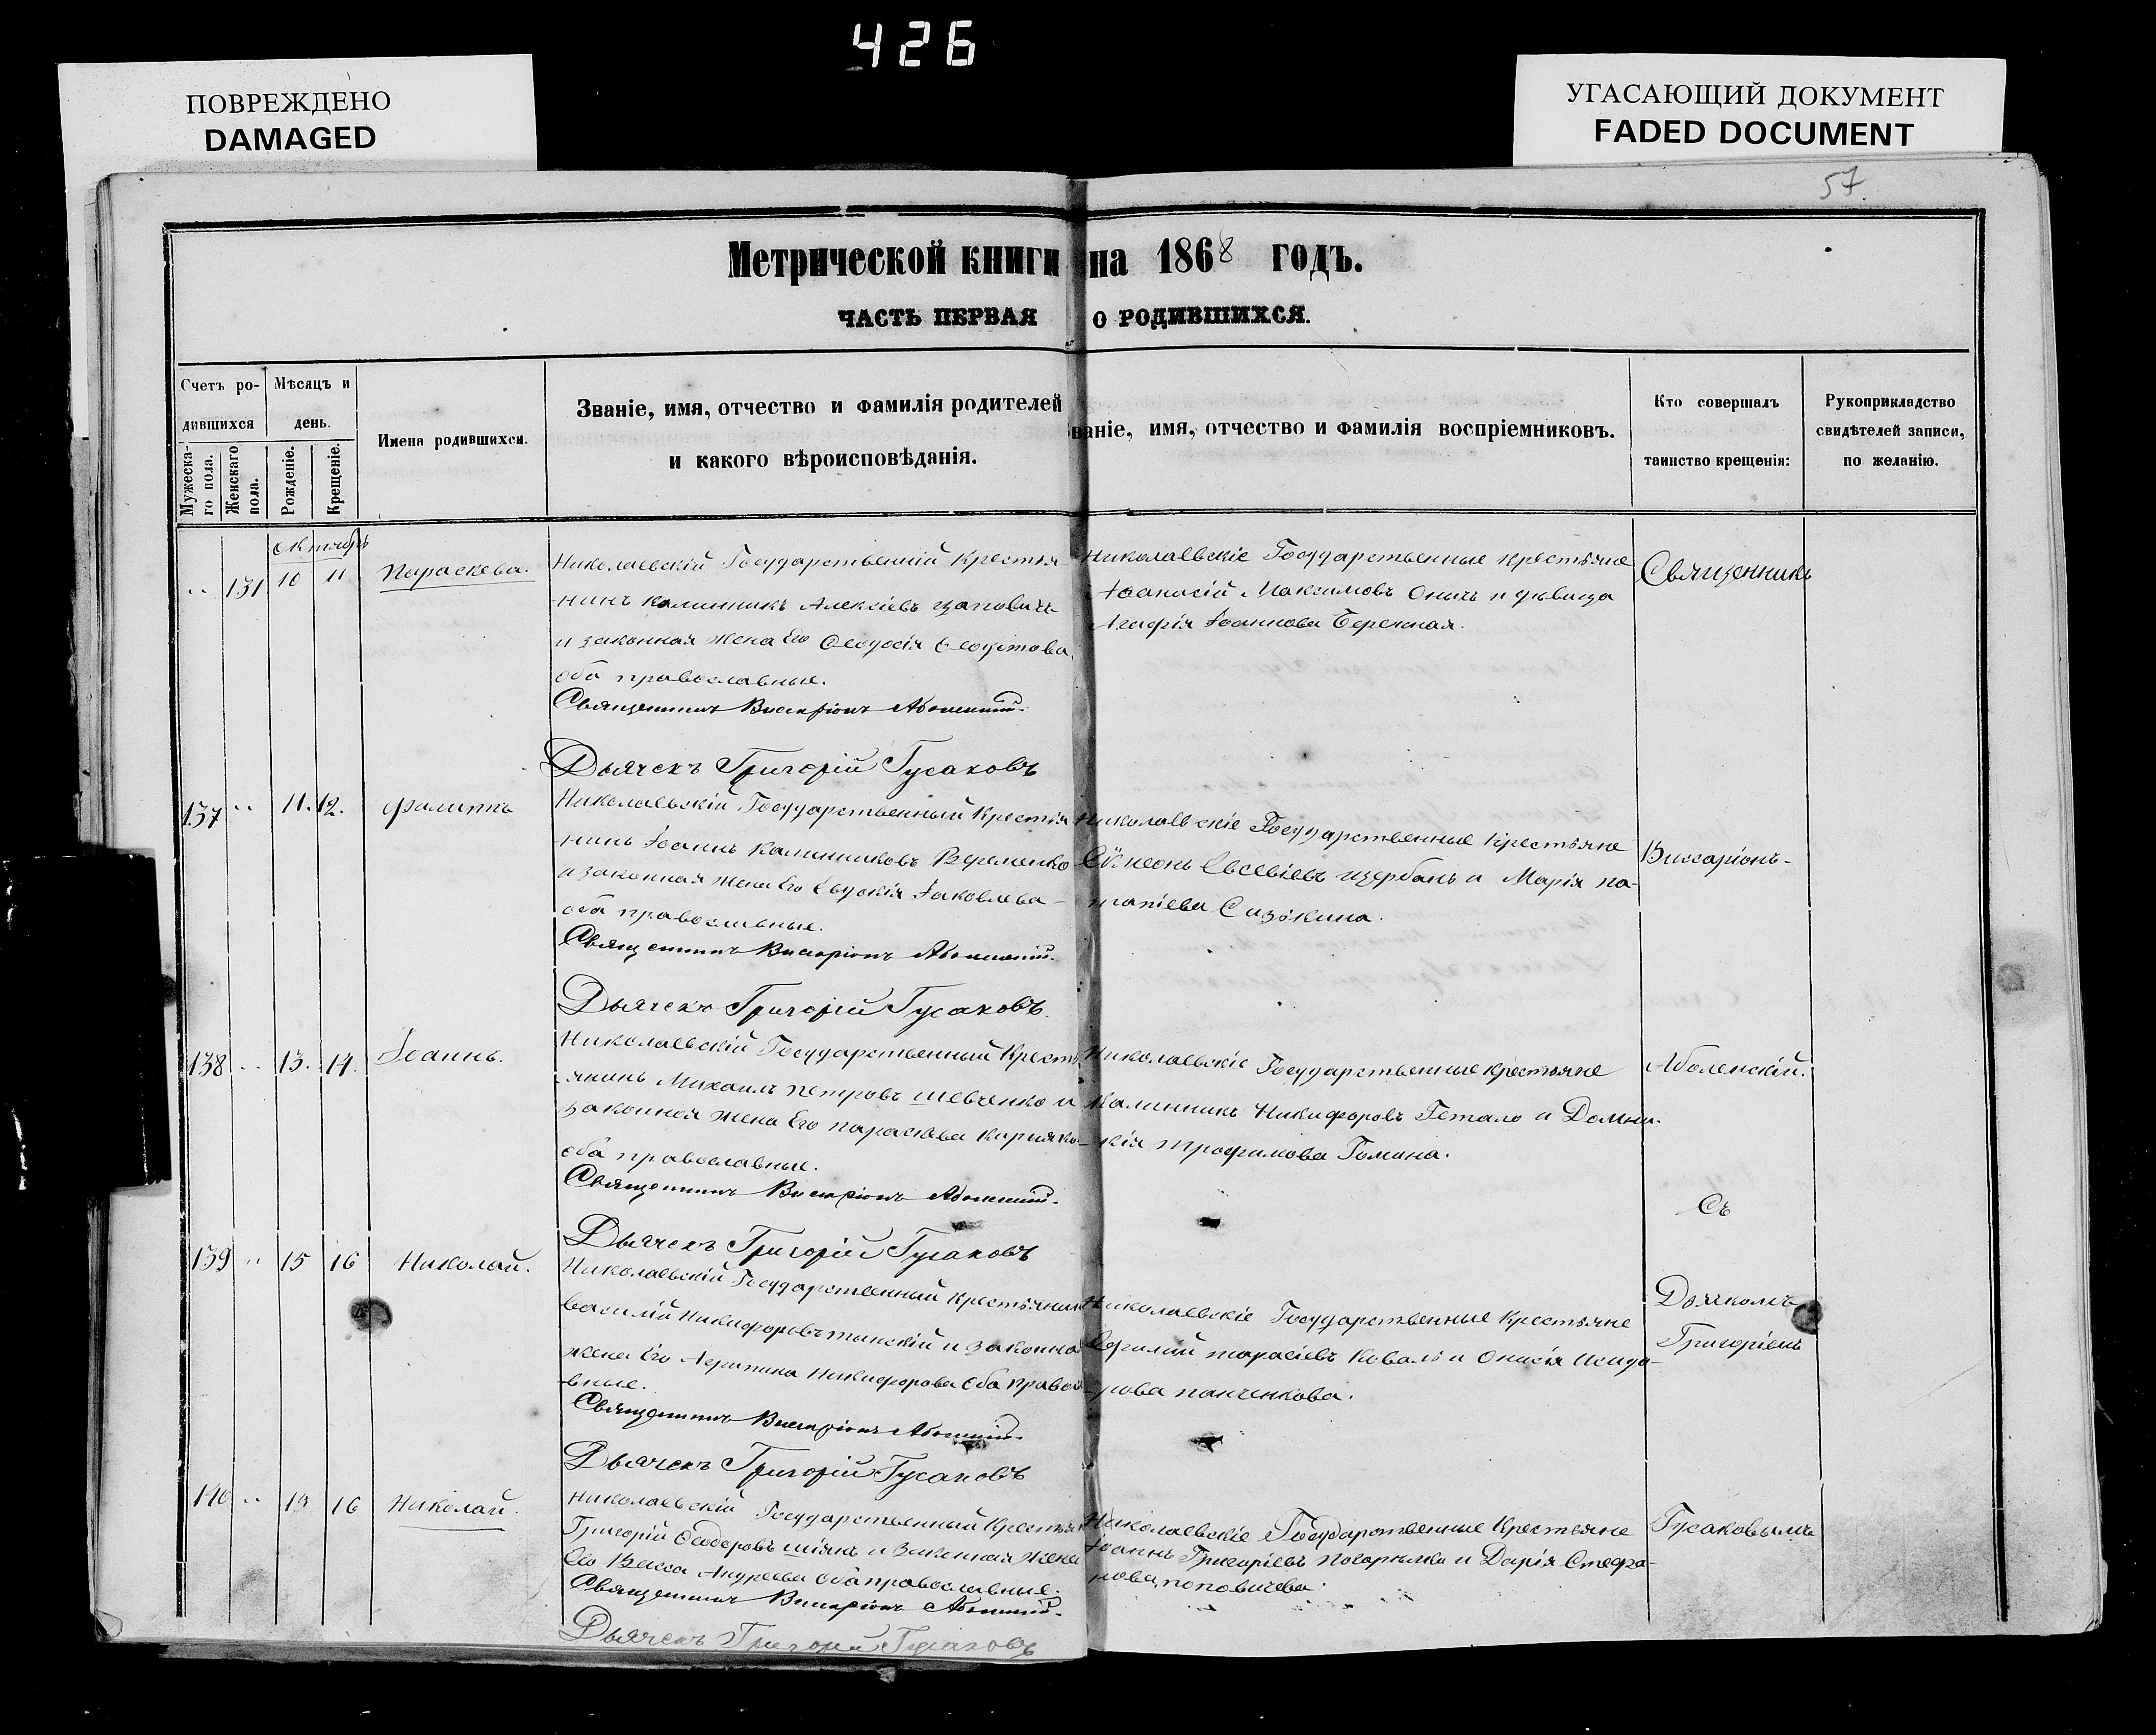 426
ПОВРЕЖДЕНО
DAMAGED
УГАСАЮЩИЙ ДОКУМЕНТ
FADED DOCUMENT
57.
Метрической книги на 1868 годъ.
ЧАСТЬ ПЕРВАЯ О РОДИВШИХСЯ.
Счетъ ро-
дившихся
Мужеска-
го пола.
Женскаго
пола.
Мѣсяцъ и
день.
Рожденіе.
Крещеніе.
Имена родившихся.
Званіе, имя, отчество и фамилія родителей
и какого вѣроисповѣданія.
ваніе, имя, отчество и фамилія воспріемниковъ.
Кто совершалъ
таинство крещенія:
Рукоприкладство
свидѣтелей записи,
по желанію.
Октябрь
131 10 11 Параскева.
Николаевскій Государственный Крестья-
-нинъ Калинникъ Алексіевъ
и законная жена Его Ѳеодосія
оба православные.
Священникъ Виссаріонъ Аболенскій.
Дьячекъ Григорій Гусаковъ
Николаевскіе Государственные крестьяне
Аѳанасій Максимовъ и дѣвица
Агафія Іоаннова Бережная.
Священникъ
137 11. 12. Филиппъ
Николаевскій Государственный Крестья
-нинъ Іоаннъ Калинниковъ Веременко
и законная жена Его Евдокія Іаковлева
оба православные.
Священникъ Виссаріонъ Аболенскій.
Дьячекъ Григорій Гусаковъ
Николаевскіе Государственные Крестьяне
Сѵмеонъ Евсевіевъ щербань и Марія па-
Сизокина.
Виссаріонъ
138 13. 14. Іоаннъ.
Николаевскій Государственный Кресть
янинъ Михаилъ Петровъ Шевченко и
законная жена Его Параскева
оба православные.
Священникъ Виссаріонъ Аболенскій.
Дьячекъ Григорій Гусаковъ
Николаевскіе Государственные крестьяне
Калинникъ Никифоровъ Гетало и Домни-
кія Трофимова Гомина.
Аболенскій.
Съ
139 15 16 Николай.
Николаевскій Государственный Крестьянин
Василій Никифоровъ и законна
жена Его Агрипина Никифорова оба правосл
-вные.
Священникъ Виссаріонъ Аболенскій.
Дьячекъ Григорій Гусаковъ
Николаевскіе Государственные Крестьяне
Тарасіевъ Коваль и Онисія Исидо-
-рова панченкова.
Дьячкомъ
Григоріемъ
140 14 16 Николай.
Николаевскій Государственный Крестьян
Григорій Ѳеодоровъ и Законная Жена
Его Васса Андреева оба православные.
Священникъ Виссаріонъ Аболенскій.
Дьячекъ Григорій Гусаковъ
Николаевскіе Государственные Крестьяне
Іоаннъ Григоріевъ и Дарія Стефа-
нова поповичева.
Гусаковымъ